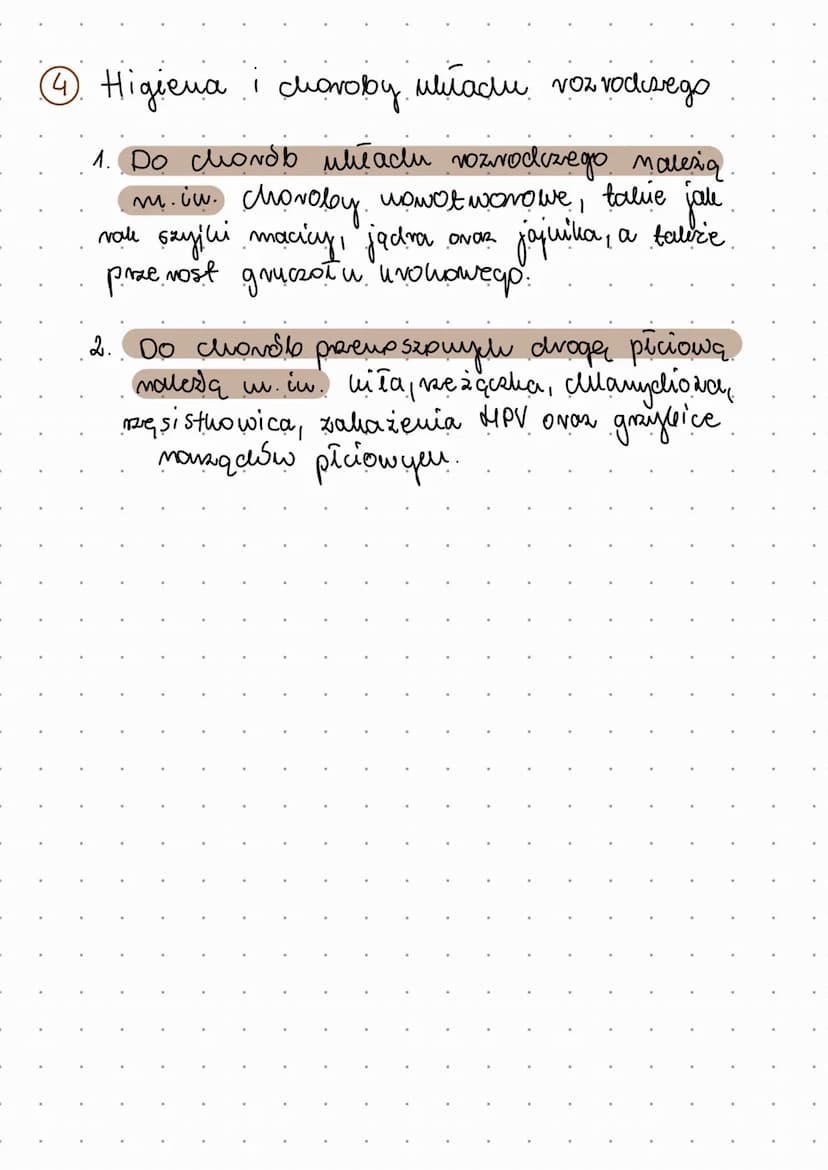 4 Higiena i choroby układu rozrodczego
1. Do chorób układu rozrodczego należą
m.in. choroby nowotworowe, takie jak
rak szyjki macicy, jądra oraz jajnika, a także
przerost gruczołu krokowego.
2. Do chorób przenoszonych drogą płciową
należą m.in. kiła, rzeżączka, chlamydioza,
rzęsistkowica, zakażenia HPV oraz grzybice
narządów płciowych.